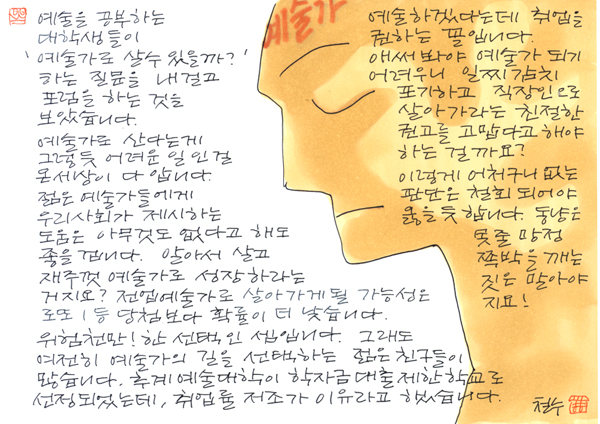 예술을 공부하는
대학생들이
'예술가로 살수 있을까?'
하는 질문을 내걸고
포럼을 하는 것을
보았습니다.
예술가로 산다는게
그렇듯 어려운 일인걸
온세상이 다 압니다.
젊은 예술가들에게
우리사회가 제시하는
도움은 아무것도 없다고 해도
좋을겁니다. 알아서 살고
재주껏 예술가로 성장하라는
거지요? 전업예술가로 살아가게될 가능성은
로또 1등 당첨보다 확률이 더 낮습니다.
위험천만! 한 선택인 셈입니다. 그래도
여전히 예술가의 길을 선택하는 젊은친구들이
많습니다. 추계예술대학이 학자금대출제한학교로
선정되었는데, 취업률 저조가 이유라고 했습니다.
예술가
예술하겠다는데 취업을
권하는 꼴입니다.
애써봐야 예술가 되기
어려우니 일찌감치
포기하고 직장인으로
살아가라는 친절한
권고를 고맙다고해야
하는 걸까요?
이렇게 어처구니 없는
판단은 철회되어야
옳을듯합니다. 동냥은
못줄 망정
쪽박을 깨는
짓은 말아야
지요!
철수